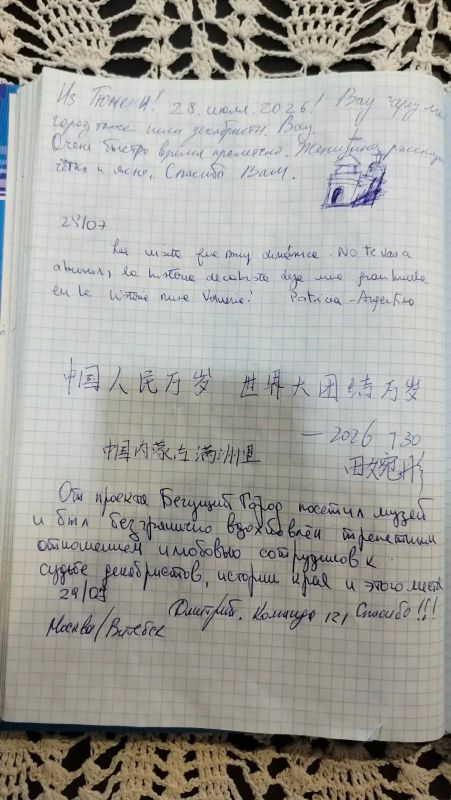 Из Тюмени! 28. июля. 2026! Вау через мой
город тоже шли декабристы. Вау
Очень быстро время пролетело.
чётко и ясно, Спасибо Вам.
29/07
La visita fue muy dinámica. No te vas a
aburrir, la historia decabrista deja una gran huella
en la historia rusa Patricia - Argentina
中国人民万岁 世界大团结万岁
— 2026 7.30
中国内蒙古满洲里
От проекта Бегущий Город посетил музей
и был безгранично вдохновлён трепетным
отношением и любовью сотрудников к
судьбе декабристов, истории края и этого места
29/07
Дмитрий. Команда 121 Спасибо!!!
Москва/Витебск